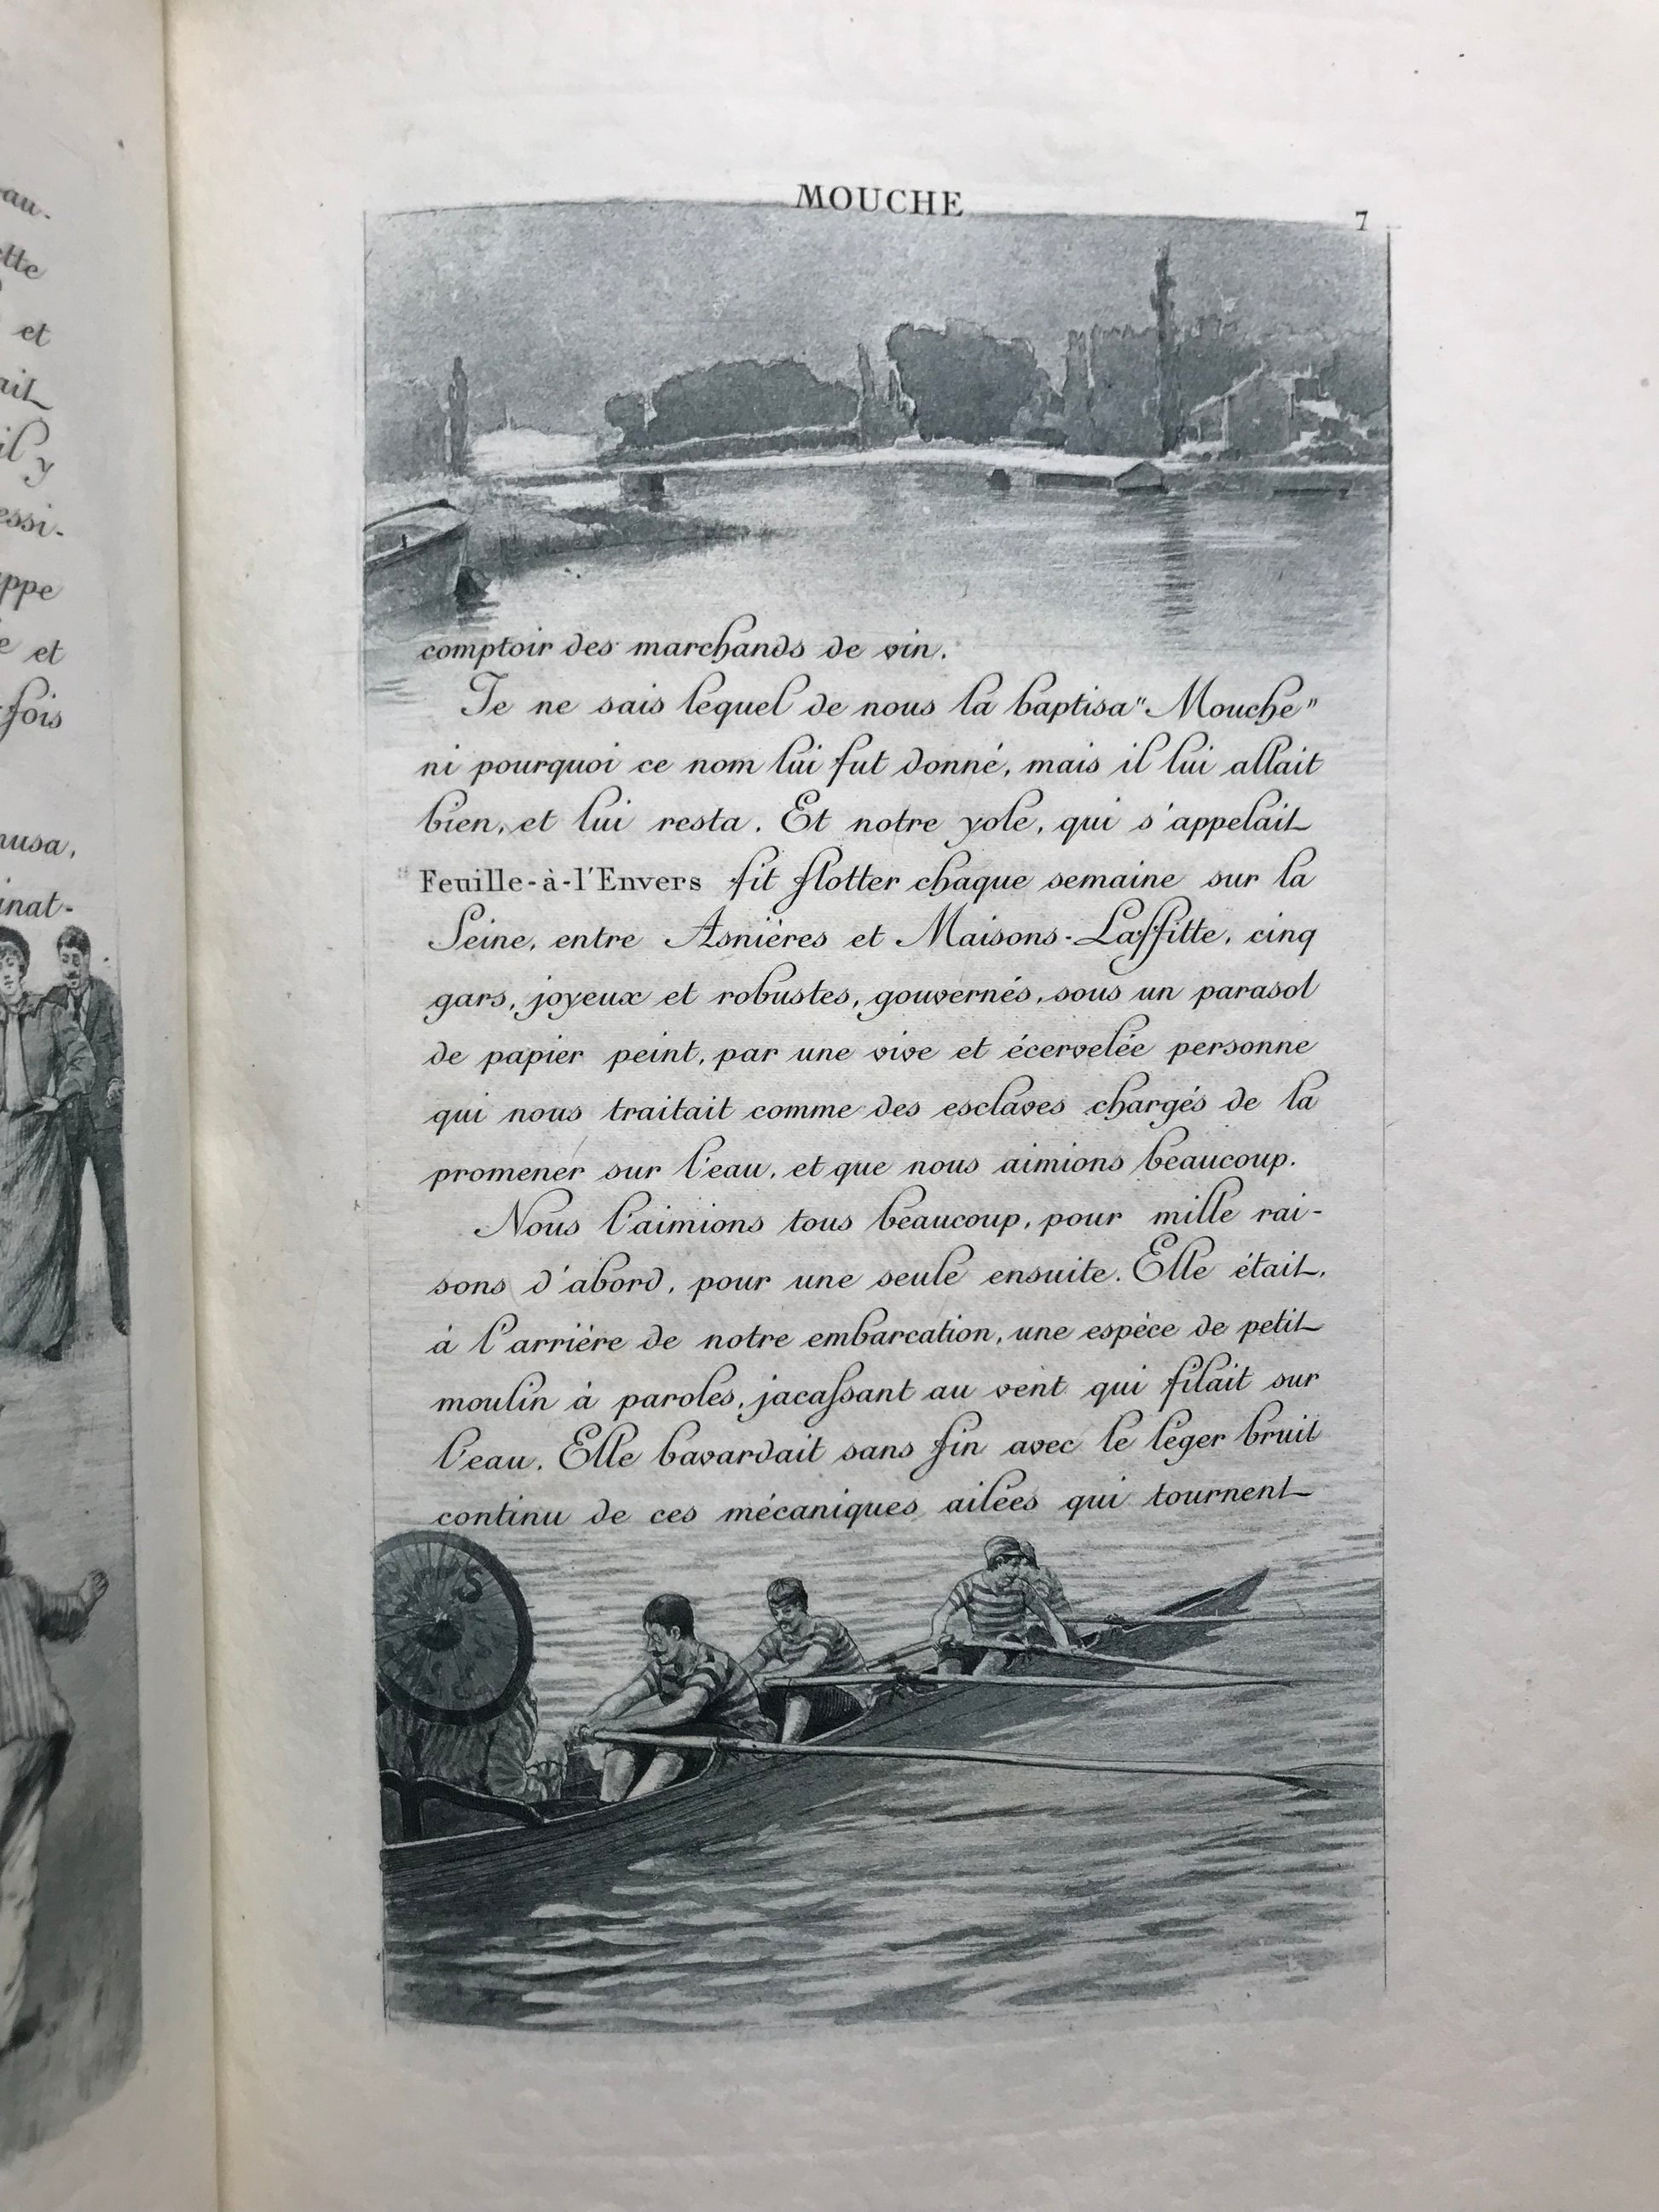 au-
et
il y
fois
MOUCHE
7
comptoir des marchands de vin.
Je ne sais lequel de nous la baptisa "Mouche"
ni pourquoi ce nom lui fut donné, mais il lui allait
bien, et lui resta. Et notre yole, qui s'appelait
Feuille-à-l'Envers fit flotter chaque semaine sur la
Seine, entre Asnières et Maisons-Laffitte, cinq
gars, joyeux et robustes, gouvernés, sous un parasol
de papier peint, par une vive et écervelée personne
qui nous traitait comme des esclaves chargés de la
promener sur l'eau, et que nous aimions beaucoup.
Nous l'aimions tous beaucoup, pour mille rai-
sons d'abord, pour une seule ensuite. Elle était,
à l'arrière de notre embarcation, une espèce de petit
moulin à paroles, jacassant au vent qui filait sur
l'eau. Elle bavardait sans fin avec le léger bruit
continu de ces mécaniques ailées qui tournent